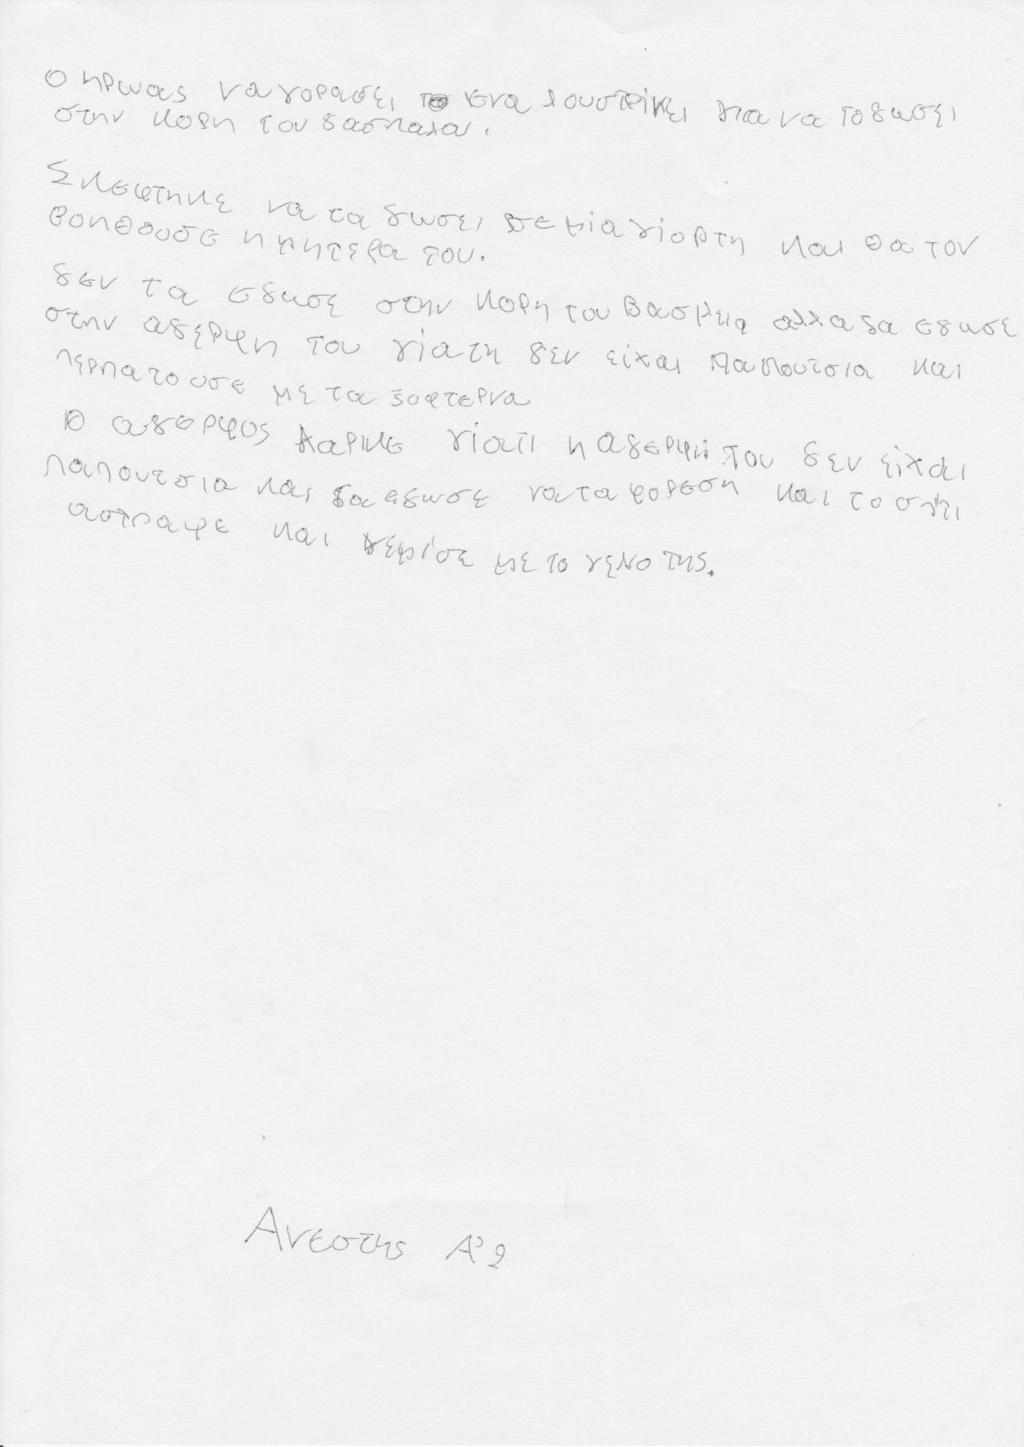 Ο ηρωας να γορασει ενα λουστρινι για να το δωσει
στην κορη του δασκαλα.
Σκεφτηκε να τα δωσει σε μια γιορτη και θα τον
βοηθουσε η μητερα του.
δεν τα εδωσε στην κορη του βασιλεια αλλα δα εδωσε
στην αδερφη του γιατη δεν ειχαι παπουτσια και
περπατουσε με τα ξοφτερνα
Ο αδερφος χαρικε γιατι η αδερφη του δεν ειχαι
παπουτσια και δα εδωσε να τα φορεση και το σπιτι
αστραψε και γεμισε με το γελιο της.
Ανεστης Α'2